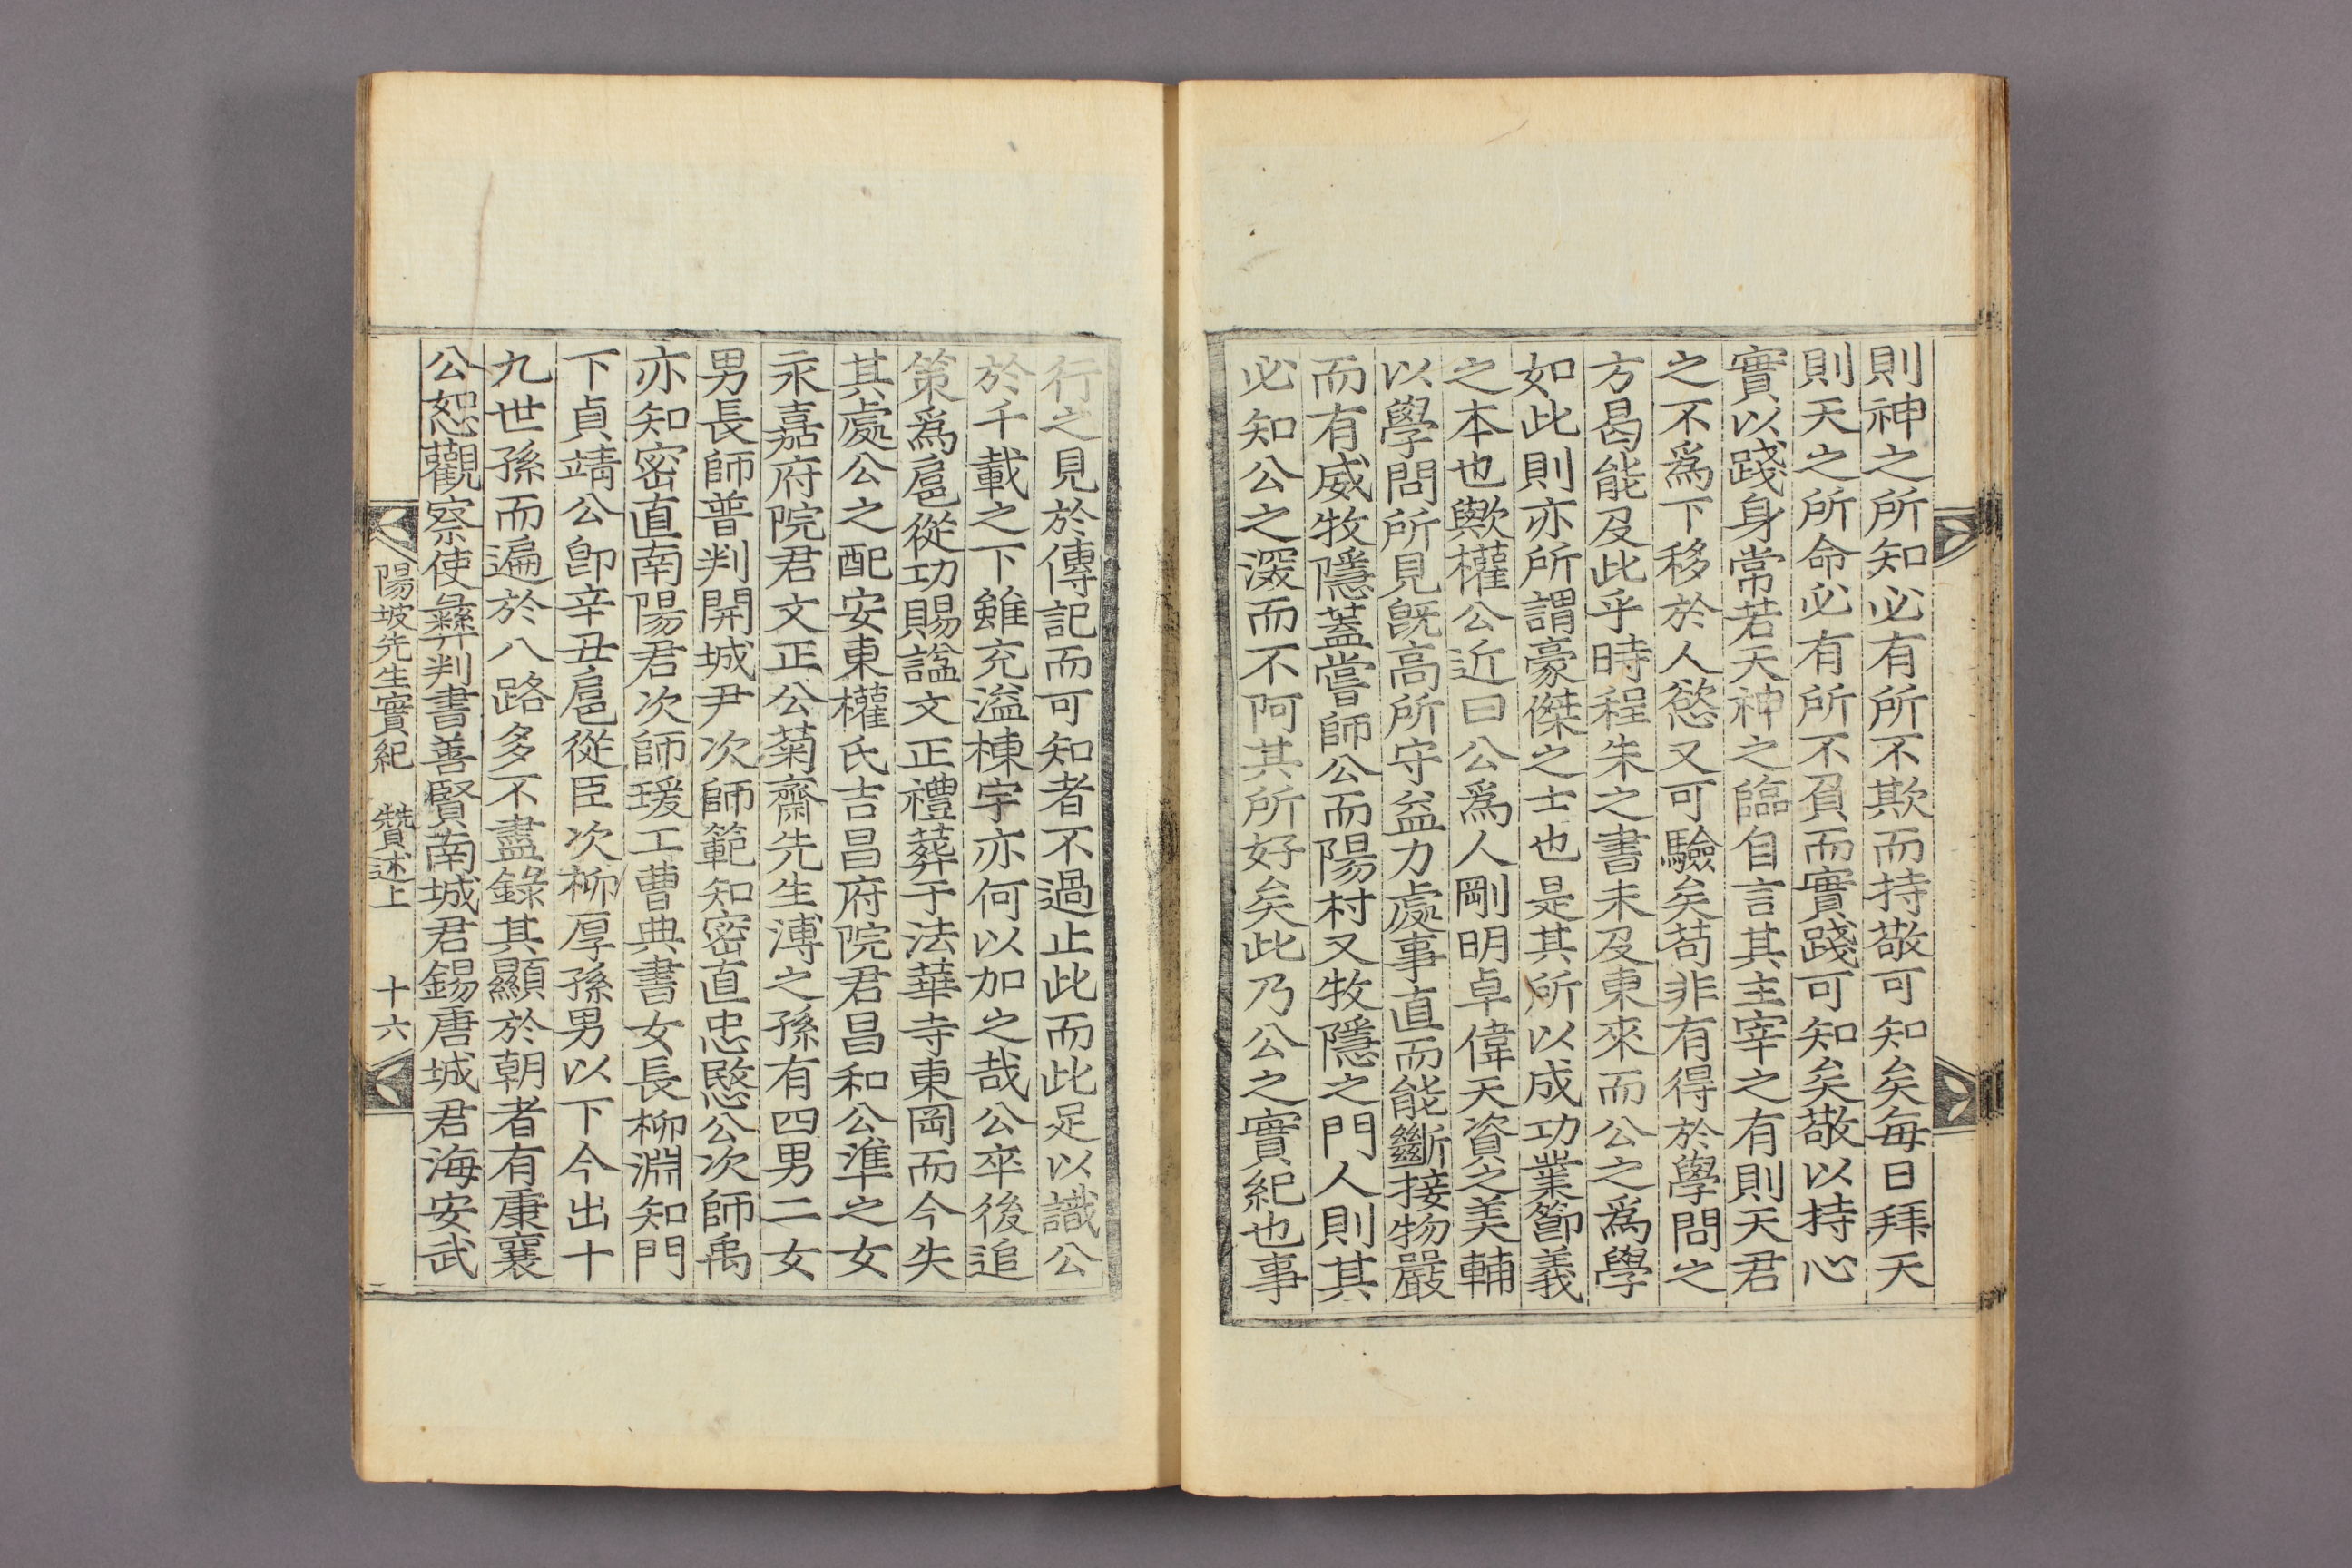 則神之所知必有所不欺而持敬可知矣每日拜天
則天之所命必有所不負而實踐可知矣敬以持心
實以踐身常若天神之臨自言其主宰之有則天君
之不爲下移於人慾又可驗矣苟非有得於學問之
方曷能及此乎時程朱之書未及東來而公之爲學
如此則亦所謂豪傑之士也是其所以成功業節義
之本也歟權公近曰公爲人剛明卓偉天資之美輔
以學問所見旣高所守益力處事直而能斷接物嚴
而有威牧隱蓋嘗師公而陽村又牧隱之門人則其
必知公之深而不阿其所好矣此乃公之實紀也事
行之見於傳記而可知者不過止此而此足以識公
於千載之下雖充溢棟宇亦何以加之哉公卒後追
策爲扈從功賜諡文正禮葬于法華寺東岡而今失
其處公之配安東權氏吉昌府院君昌和公準之女
永嘉府院君文正公菊齋先生溥之孫有四男二女
男長師普判開城尹次師範知密直忠愍公次師禹
亦知密直南陽君次師瑗工曹典書女長柳淵知門
下貞靖公卽辛丑扈從臣次柳厚孫男以下今出十
九世孫而遍於八路多不盡錄其顯於朝者有康襄
公恕觀察使彝判書善賢南城君錫唐城君海安武
陽坡先生實紀 贊述上 十六